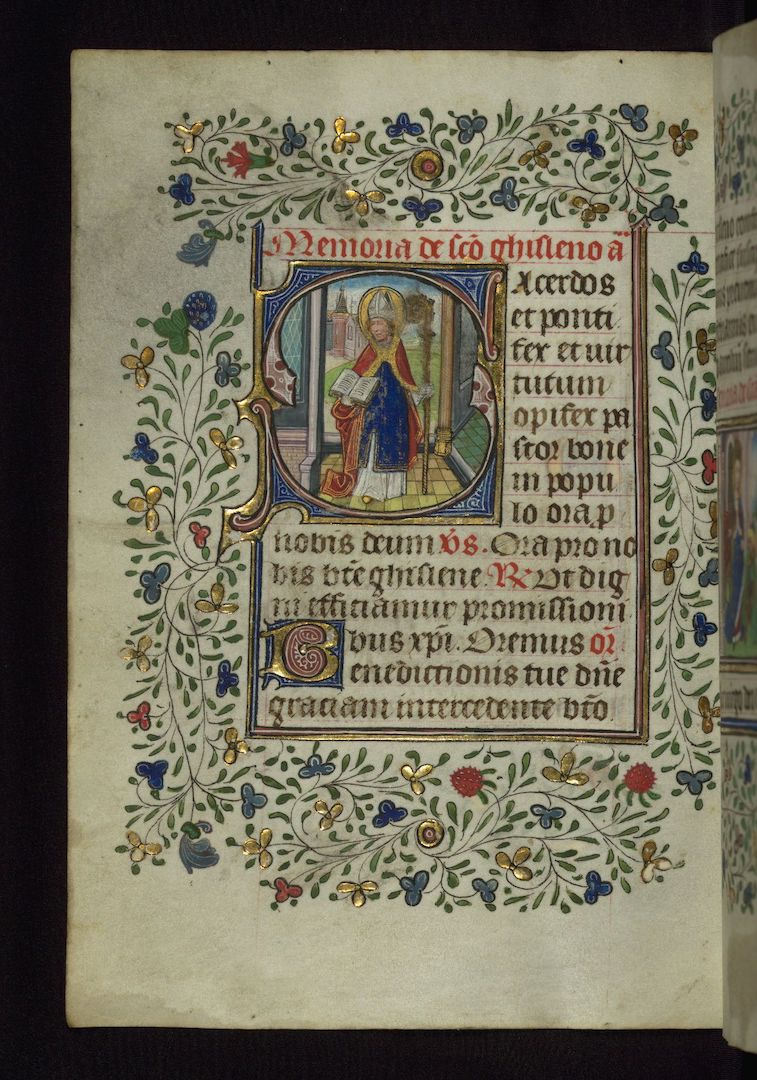 Memoria de sco ghisleno ã
Acerdos
et ponti
fex et vir
tutum
opifex pa
stor bone
in popu
lo ora p
nobis deum v̄s. Ora pro no
bis bt̄e ghislene. R̄ Vt dig
ni efficiamur promissioni
bus xp̄i. Oremus or̄
Benedictionis tue dn̄e
graciam intercedente bt̄o